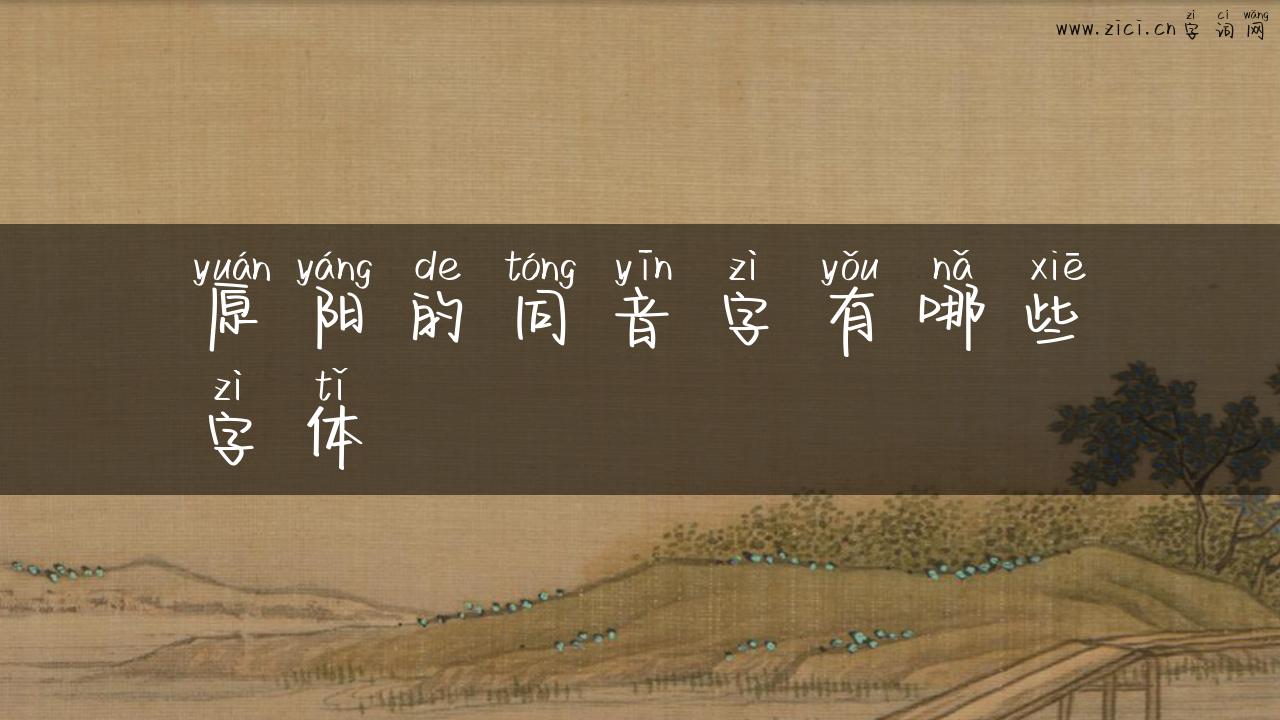 zì cí wǎng
www.zici.cn字词网
yuán yáng de tóng yīn zì yǒu nǎ xiē
原阳的同音字有哪些
zì tǐ
字体